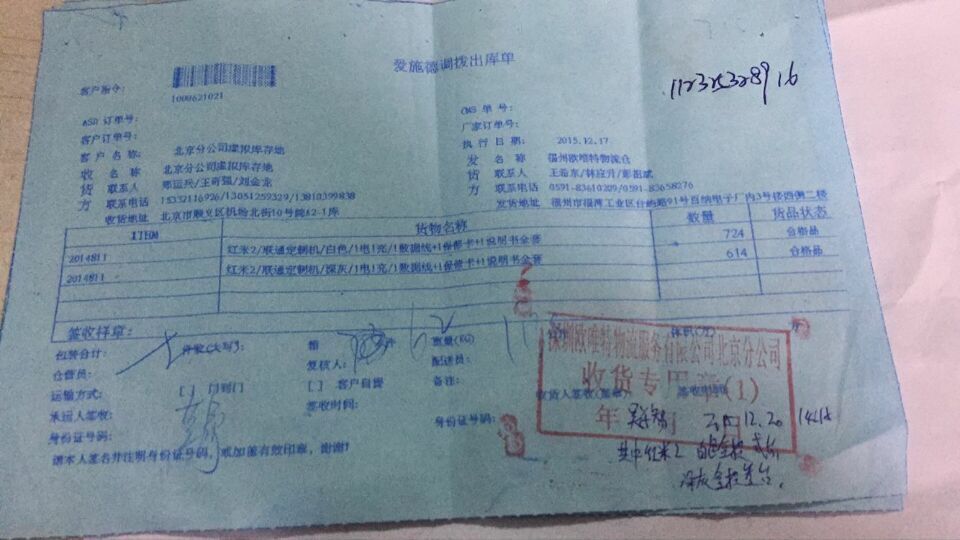 爱施德调拨出库单
客户指令:
1000621021
ASD 订单号:
CMS 单 号:
客户订单号:
厂家订单号:
执 行 日 期: 2015.12.17
客 户 名 称 北京分公司虚拟库存地
发 名 称 福州欧唯特物流仓
收 名 称 北京分公司虚拟库存地
货 联系人
货 联系人
方 联系电话 15332116926/13051259329/13810399838
方 联系电话 0591-83610209/0591-83658276
收货地址 北京市顺义区机场北街10号院A2-1库
发货地址
ITEM 货物名称 数量 货品状态
2014811 红米2/联通定制机/白色/1电1充/1数据线+1保修卡+1说明书全套 724 合格品
2014811 红米2/联通定制机/深灰/1电1充/1数据线+1保修卡+1说明书全套 614 合格品
签收样章:
包装合计: 件数(大写): 箱 件 重量(KG) 体积(方)
仓管员: 复核人: 配送员:
运输方式: [ ] 门到门 [ ] 客户自提 备注:
承运人签收: 签收时间: 收货人签收(签章) 签收时间
身份证号码: 身份证号码:
请本人签名并注明身份证号码,或加盖有效印章,谢谢!
深圳欧唯特物流服务有限公司北京分公司
收货专用章(1)
年
12.20